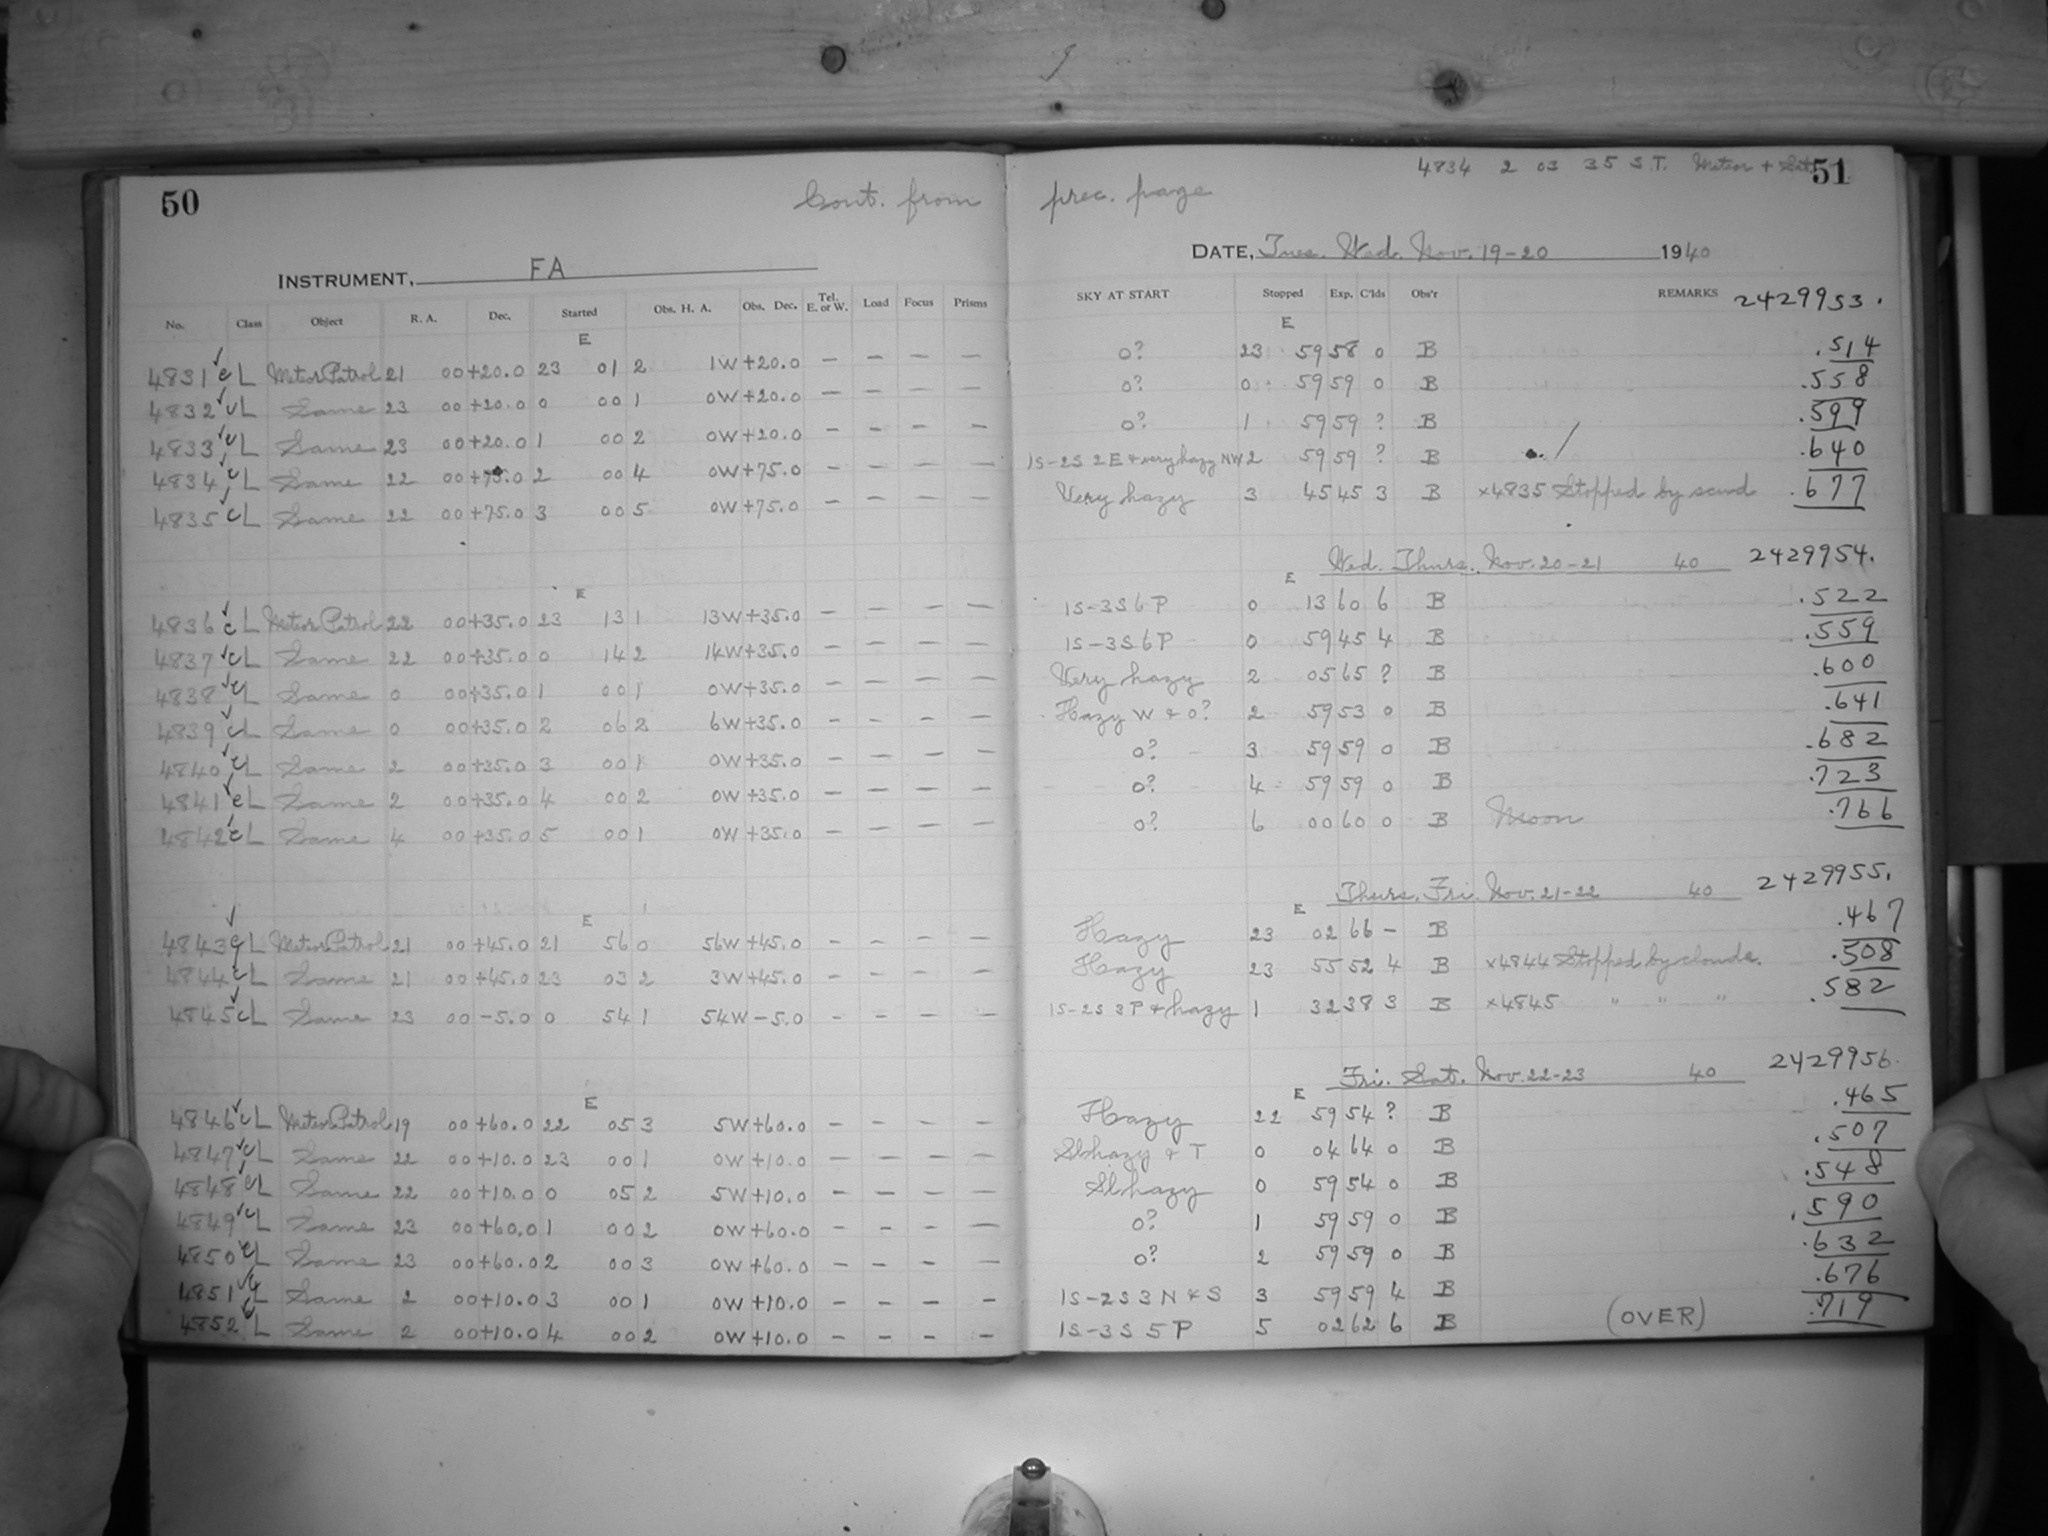 4834 2 03 35 S.T. Meteor + Sat.
50 Cont. from prec. page 51
INSTRUMENT, FA DATE, Tues. Wed. Nov. 19-20 1940
No. Class Object R. A. Dec. Started Obs. H. A. Obs. Dec. Tel. E. or W. Load Focus Prisms SKY AT START Stopped Exp. C'lds Obs'r REMARKS 2429953.
E E
4831 c L Meteor Patrol 21 00 +20.0 23 01 2 1W +20.0 — — — — 0? 23 59 58 0 B .514
4832 c L Same 23 00 +20.0 0 00 1 0W +20.0 — — — — 0? 0 59 59 0 B .558
4833 c L Same 23 00 +20.0 1 00 2 0W +20.0 — — — — 0? 1 59 59 ? B .599
4834 c L Same 22 00 +75.0 2 00 4 0W +75.0 — — — — 1S-2S 2E + very hazy NW 2 59 59 ? B .640
4835 c L Same 22 00 +75.0 3 00 5 0W +75.0 — — — — Very hazy 3 45 45 3 B ×4835 Stopped by scud .677
Wed. Thurs. Nov. 20-21 40 2429954.
E E
4836 c L Meteor Patrol 22 00 +35.0 23 13 1 13W +35.0 — — — — 1S-3S 6P 0 13 60 6 B .522
4837 c L Same 22 00 +35.0 0 14 2 14W +35.0 — — — — 1S-3S 6P 0 59 45 4 B .559
4838 c L Same 0 00 +35.0 1 00 1 0W +35.0 — — — — Very hazy 2 05 65 ? B .600
4839 c L Same 0 00 +35.0 2 06 2 6W +35.0 — — — — Hazy W + 0? 2 59 53 0 B .641
4840 c L Same 2 00 +35.0 3 00 1 0W +35.0 — — — — 0? 3 59 59 0 B .682
4841 c L Same 2 00 +35.0 4 00 2 0W +35.0 — — — — 0? 4 59 59 0 B .723
4842 c L Same 4 00 +35.0 5 00 1 0W +35.0 — — — — 0? 6 00 60 0 B Moon .766
Thurs. Fri. Nov. 21-22 40 2429955.
E E
4843 c L Meteor Patrol 21 00 +45.0 21 56 0 56W +45.0 — — — — Hazy 23 02 66 — B .467
4844 c L Same 21 00 +45.0 23 03 2 3W +45.0 — — — — Hazy 23 55 52 4 B ×4844 Stopped by clouds. .508
4845 c L Same 23 00 -5.0 0 54 1 54W -5.0 — — — — 1S-2S 3P + hazy 1 32 38 3 B ×4845 " " " .582
Fri. Sat. Nov. 22-23 40 2429956.
E E
4846 c L Meteor Patrol 19 00 +60.0 22 05 3 5W +60.0 — — — — Hazy 22 59 54 ? B .465
4847 c L Same 22 00 +10.0 23 00 1 0W +10.0 — — — — Sl hazy & T 0 04 64 0 B .507
4848 c L Same 22 00 +10.0 0 05 2 5W +10.0 — — — — Sl hazy 0 59 54 0 B .548
4849 c L Same 23 00 +60.0 1 00 2 0W +60.0 — — — — 0? 1 59 59 0 B .590
4850 c L Same 23 00 +60.0 2 00 3 0W +60.0 — — — — 0? 2 59 59 0 B .632
4851 c L Same 2 00 +10.0 3 00 1 0W +10.0 — — — — 1S-2S 3 N + S 3 59 59 4 B .676
4852 c L Same 2 00 +10.0 4 00 2 0W +10.0 — — — — 1S-3S 5P 5 02 62 6 B (OVER) .719